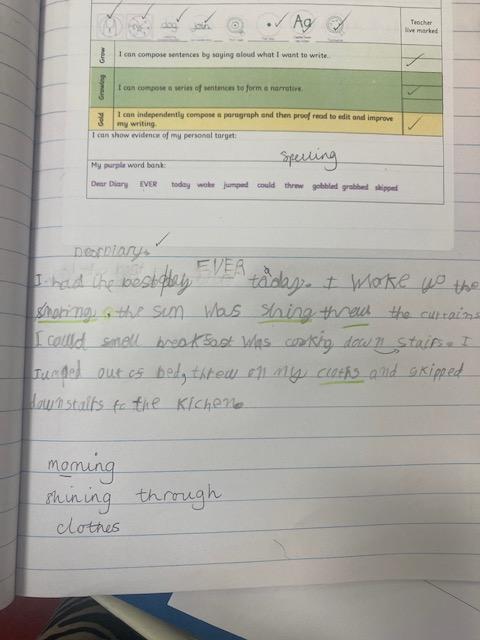 Ag
Teacher
live marked
Grow
I can compose sentences by saying aloud what I want to write.
Growing
I can compose a series of sentences to form a narrative.
Gold
I can independently compose a paragraph and then proof read to edit and improve
my writing.
I can show evidence of my personal target:
Spelling
My purple word bank:
Dear Diary EVER today woke jumped could threw gobbled grabbed skipped
Dear diary,
I had the best day EVER today. I woke up the
the sun was shing threw the curtains
I could smell breakfast was cooking down stairs. I
Jumped out of bed, threw on my cloths and skipped
downstairs to the kichen.
morning
shining through
clothes